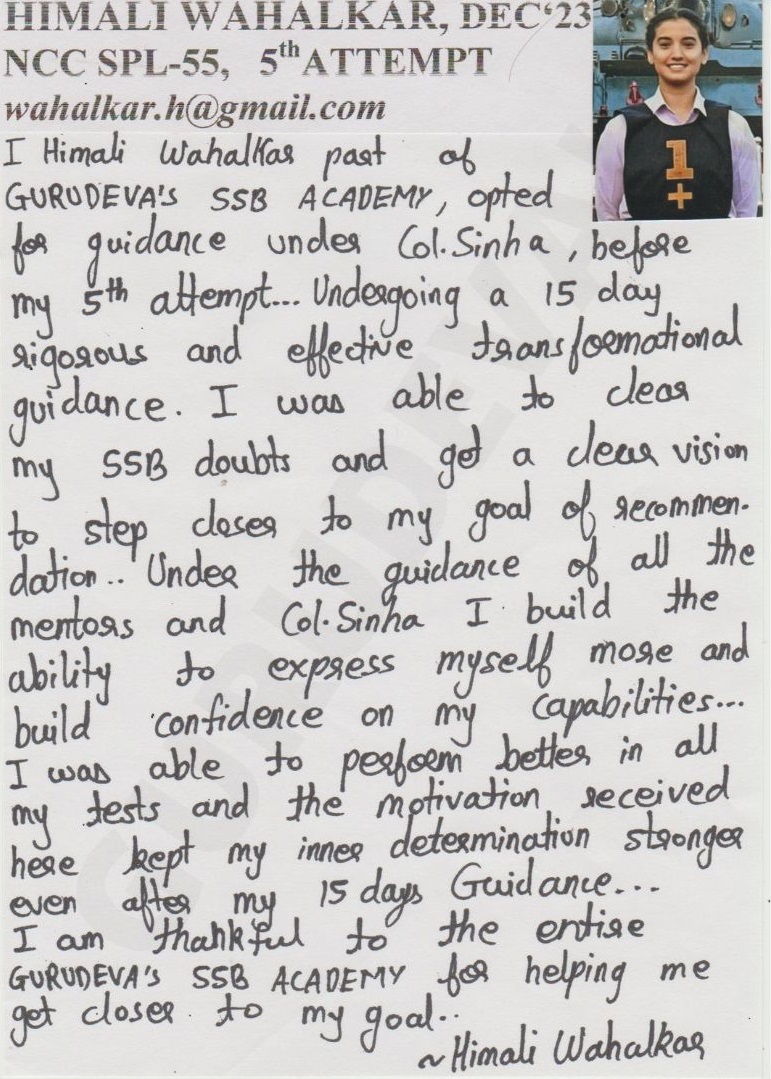 HIMALI WAHALKAR, DEC'23
NCC SPL-55, 5th ATTEMPT
wahalkar.h@gmail.com
1
+
I Himali Wahalkar part of
GURUDEVA'S SSB ACADEMY, opted
for guidance under Col.Sinha, before
my 5th attempt... Undergoing a 15 day
rigorous and effective transformational
guidance. I was able to clear
my SSB doubts and get a clear vision
to step closer to my goal of recommen-
dation.. Under the guidance of all the
mentors and Col.Sinha I build the
ability to express myself more and
build confidence on my capabilities...
I was able to perform better in all
my tests and the motivation received
here kept my inner determination stronger
even after my 15 days Guidance...
I am thankful to the entire
GURUDEVA'S SSB ACADEMY for helping me
get closer to my goal..
~Himali Wahalkar
GURUDEVA